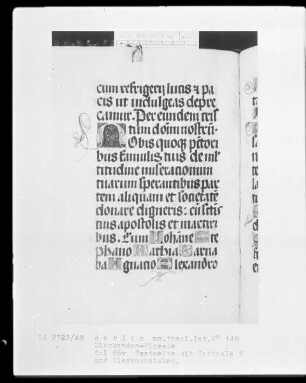 cum refrigerij lucis & pa
cis ut indulgeas depre
camur. Per eundem cris
tum dom nostrū.
NObis quoq; pctori
bus famulis tuis de ml
titudine miserationum
tuarum sperantibus par
tem aliquam et societatē
donare digneris: cū sctis
tuis apostolis et martiri
bus. Cum Iohāne Ste
phano Mathia Barna
ba Ignacio Alexandro
Berlin ms.theol.lat.2° 148
Glockendon-Missale
Fol 66v Textseite mit Initiale N
und Zierbuchstaben.